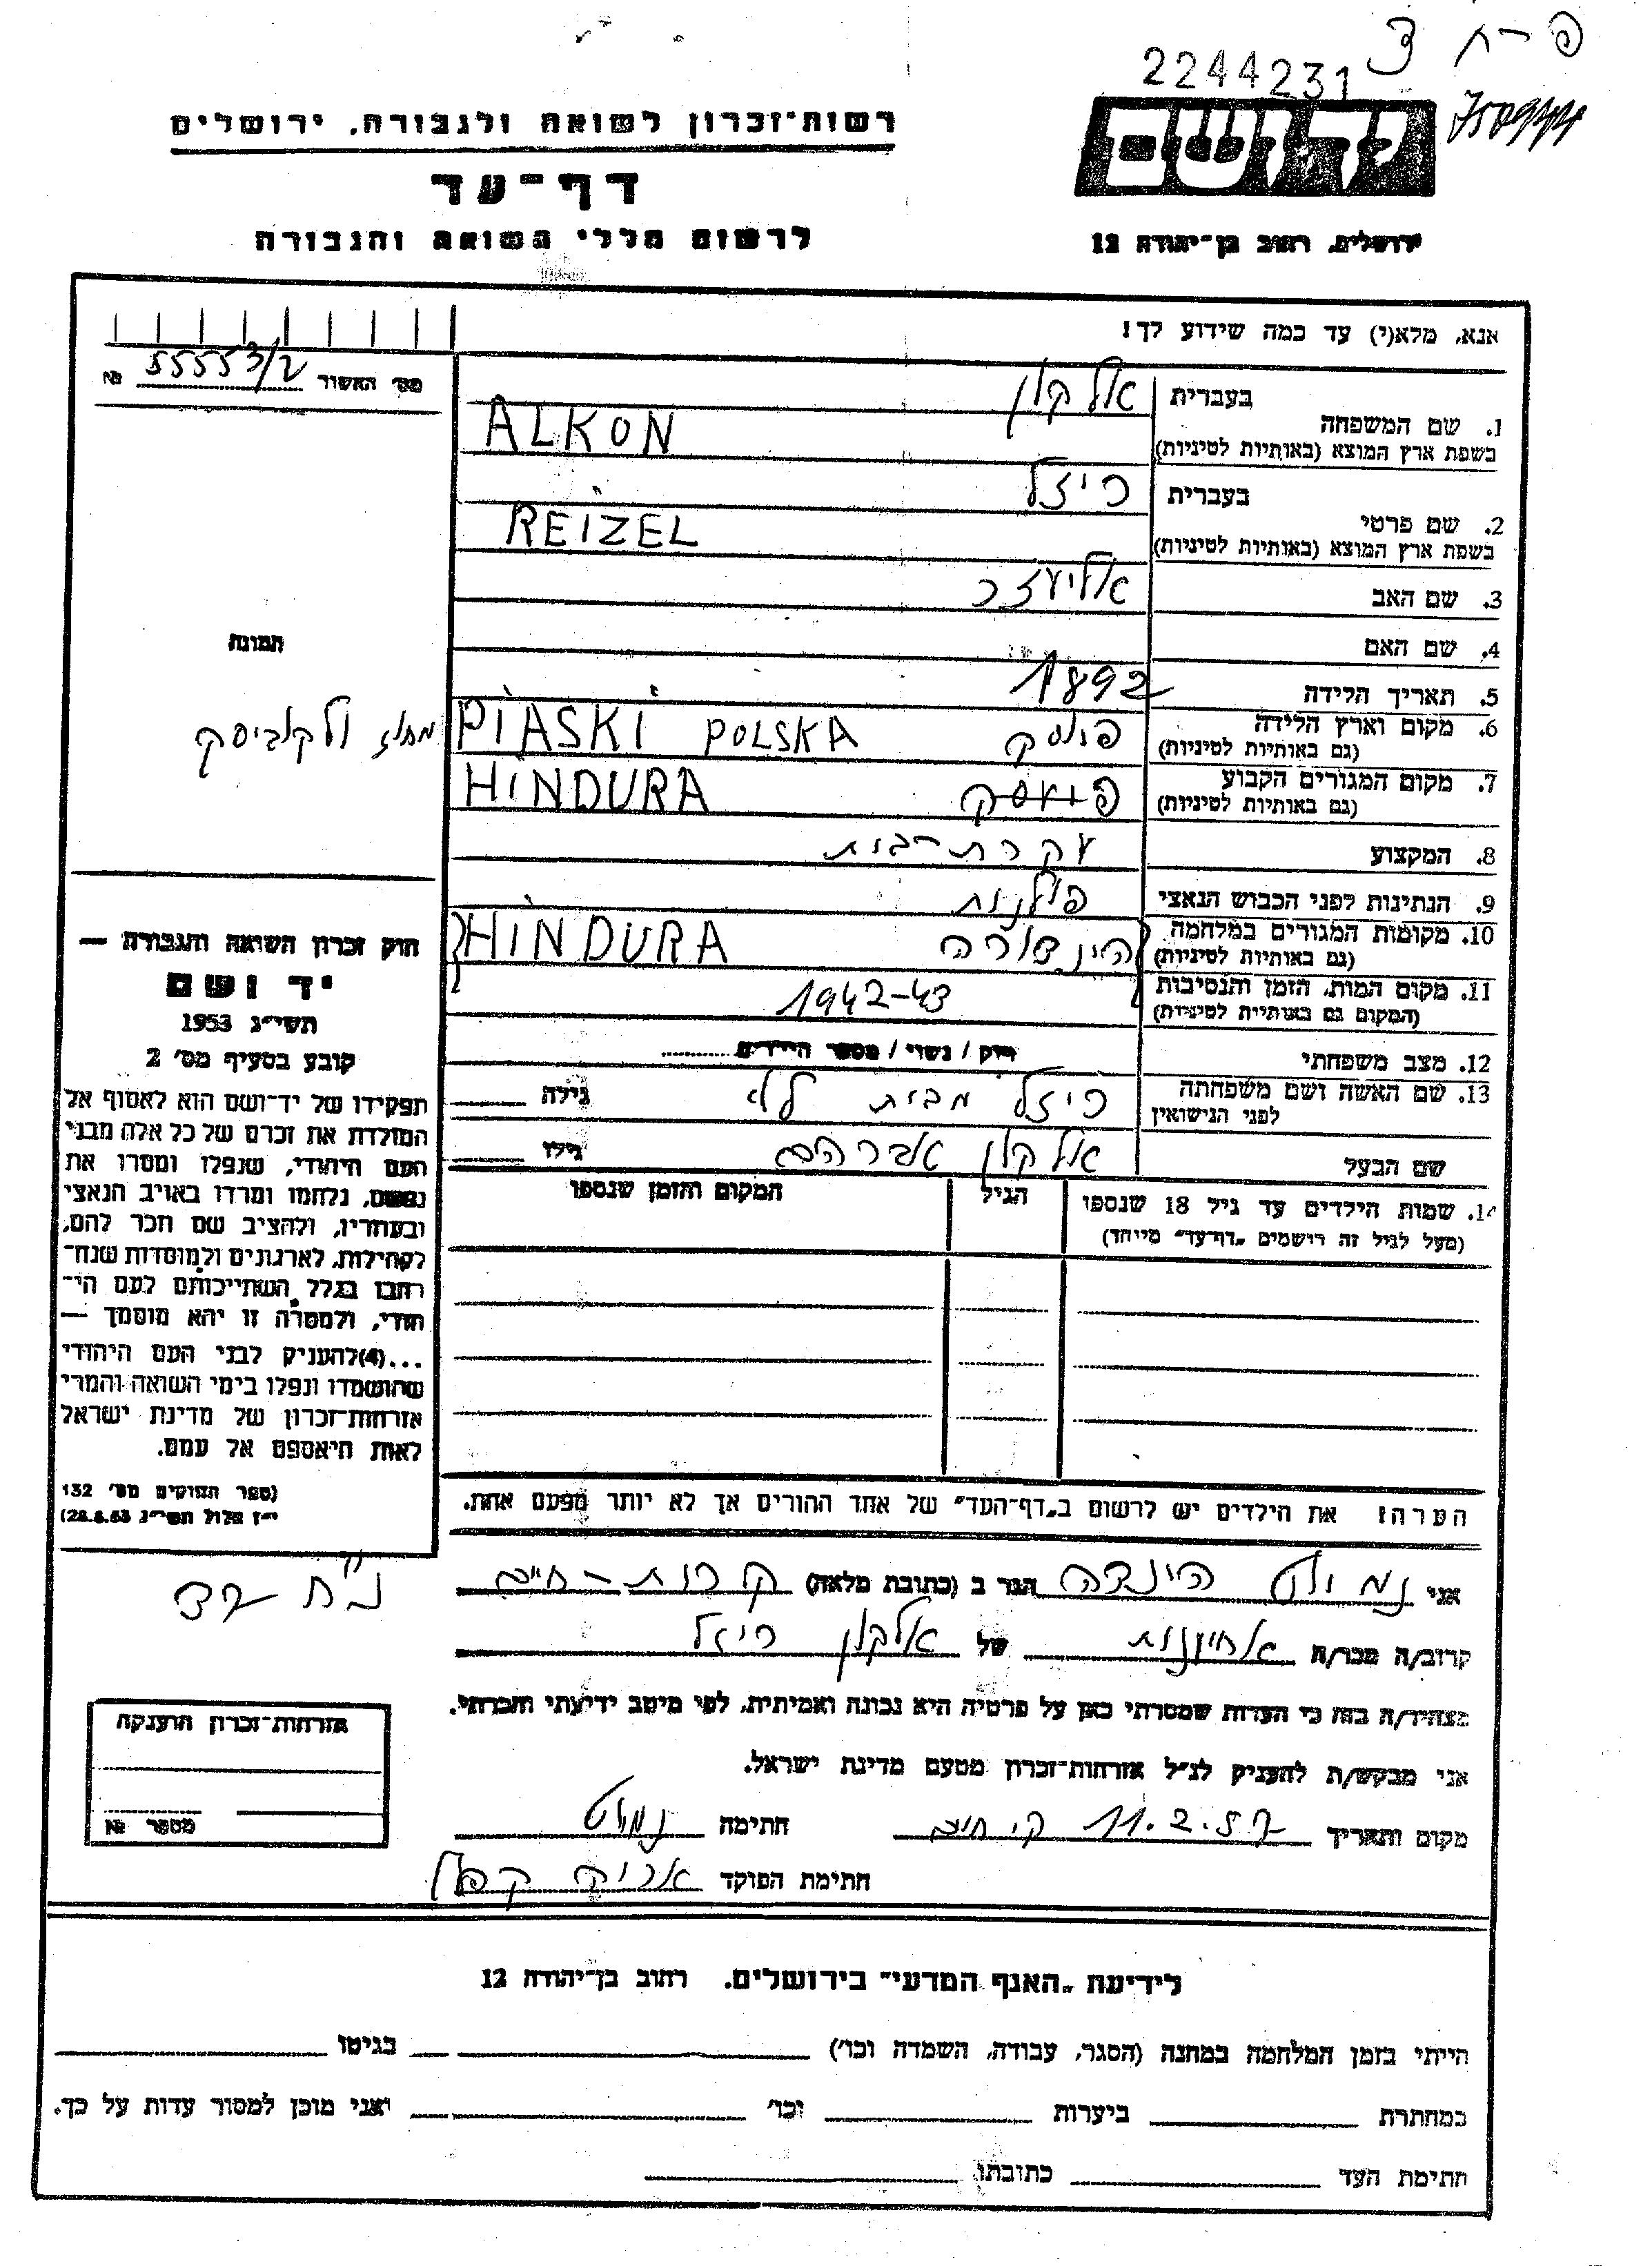 פ-ח צ
2244231
יד ושם
רשות-זכרון לשואה ולגבורה. ירושלים
דף-עד
לרשום חללי השואה והגבורה
ירושלים, רחוב בן-יהודה 12
אנא, מלא(י) עד כמה שידוע לך!
מס׳ האשור 55553/2 №
בעברית אלקון
1. שם המשפחה
בשפת ארץ המוצא (באותיות לטיניות) ALKON
בעברית ריזל
2. שם פרטי
בשפת ארץ המוצא (באותיות לטיניות) REIZEL
3. שם האב אליעזר
4. שם האם
תמונה
5. תאריך הלידה 1892
6. מקום וארץ הלידה פיוסק POLSKA PIASKI מחוז ולקוביסק
(גם באותיות לטיניות)
7. מקום המגורים הקבוע פיוסק HINDURA
(גם באותיות לטיניות)
8. המקצוע עקרת-בית
9. הנתינות לפני הכבוש הנאצי פולנית
10. מקומות המגורים במלחמה הינדורה HINDURA
(גם באותיות לטיניות)
11. מקום המות, הזמן והנסיבות 1942-43
(המקום גם באותיות לטיניות)
12. מצב משפחתי רווק / נשוי / מספר הילדים
13. שם האשה ושם משפחתה ריזל מבית גילה
לפני הנישואין
שם הבעל אלקון אברהם גילו
14. שמות הילדים עד גיל 18 שנספו הגיל המקום והזמן שנספו
(מעל לגיל זה רישמים „דף-עד״ מיוחד)
חוק זכרון השואה והגבורה —
יד ושם
תשי״ג 1953
קובע בסעיף מס׳ 2
תפקידו של יד-ושם הוא לאסוף אל
המולדת את זכרם של כל אלה מבני
העם היהודי, שנפלו ומסרו את
נפשם, נלחמו ומרדו באויב הנאצי
ובעוזריו, ולהציב שם וזכר להם,
לקהילות, לארגונים ולמוסדות שנח-
רבו בגלל השתייכותם לעם הי-
הודי, ולמטרה זו יהא מוסמך —
...(4)להעניק לבני העם היהודי
שהושמדו ונפלו בימי השואה והמרי
אזרחות-זכרון של מדינת ישראל
לאות היאספם אל עמם.
(ספר החוקים מס׳ 132
י״ז אלול תשי״ג 28.8.53)
הערה! את הילדים יש לרשום ב„דף-העד״ של אחד ההורים אך לא יותר מפעם אחת.
אני נמוט הינדה הגר ב (כתובת מלאה) קרית-חיים
קרוב/ה מכר/ה אחיינית של אלקון ריזל
מצהיר/ה בזה כי העדות שמסרתי כאן על פרטיה היא נכונה ואמיתית, לפי מיטב ידיעתי והכרתי.
אני מבקש/ת להעניק לנ״ל אזרחות-זכרון מטעם מדינת ישראל.
מקום ותאריך ק. חיים 11.2.57 חתימה נמוט
חתימת הפוקד אריה קפלן
אזרחות-זכרון הוענקה
מספר №
לידיעת „האגף המדעי״ בירושלים. רחוב בן-יהודה 12
הייתי בזמן המלחמה במחנה (הסגר, עבודה, השמדה וכו׳) בגיטו
במחתרת ביערות וכו׳ ואני מוכן למסור עדות על כך.
חתימת העד כתובתו